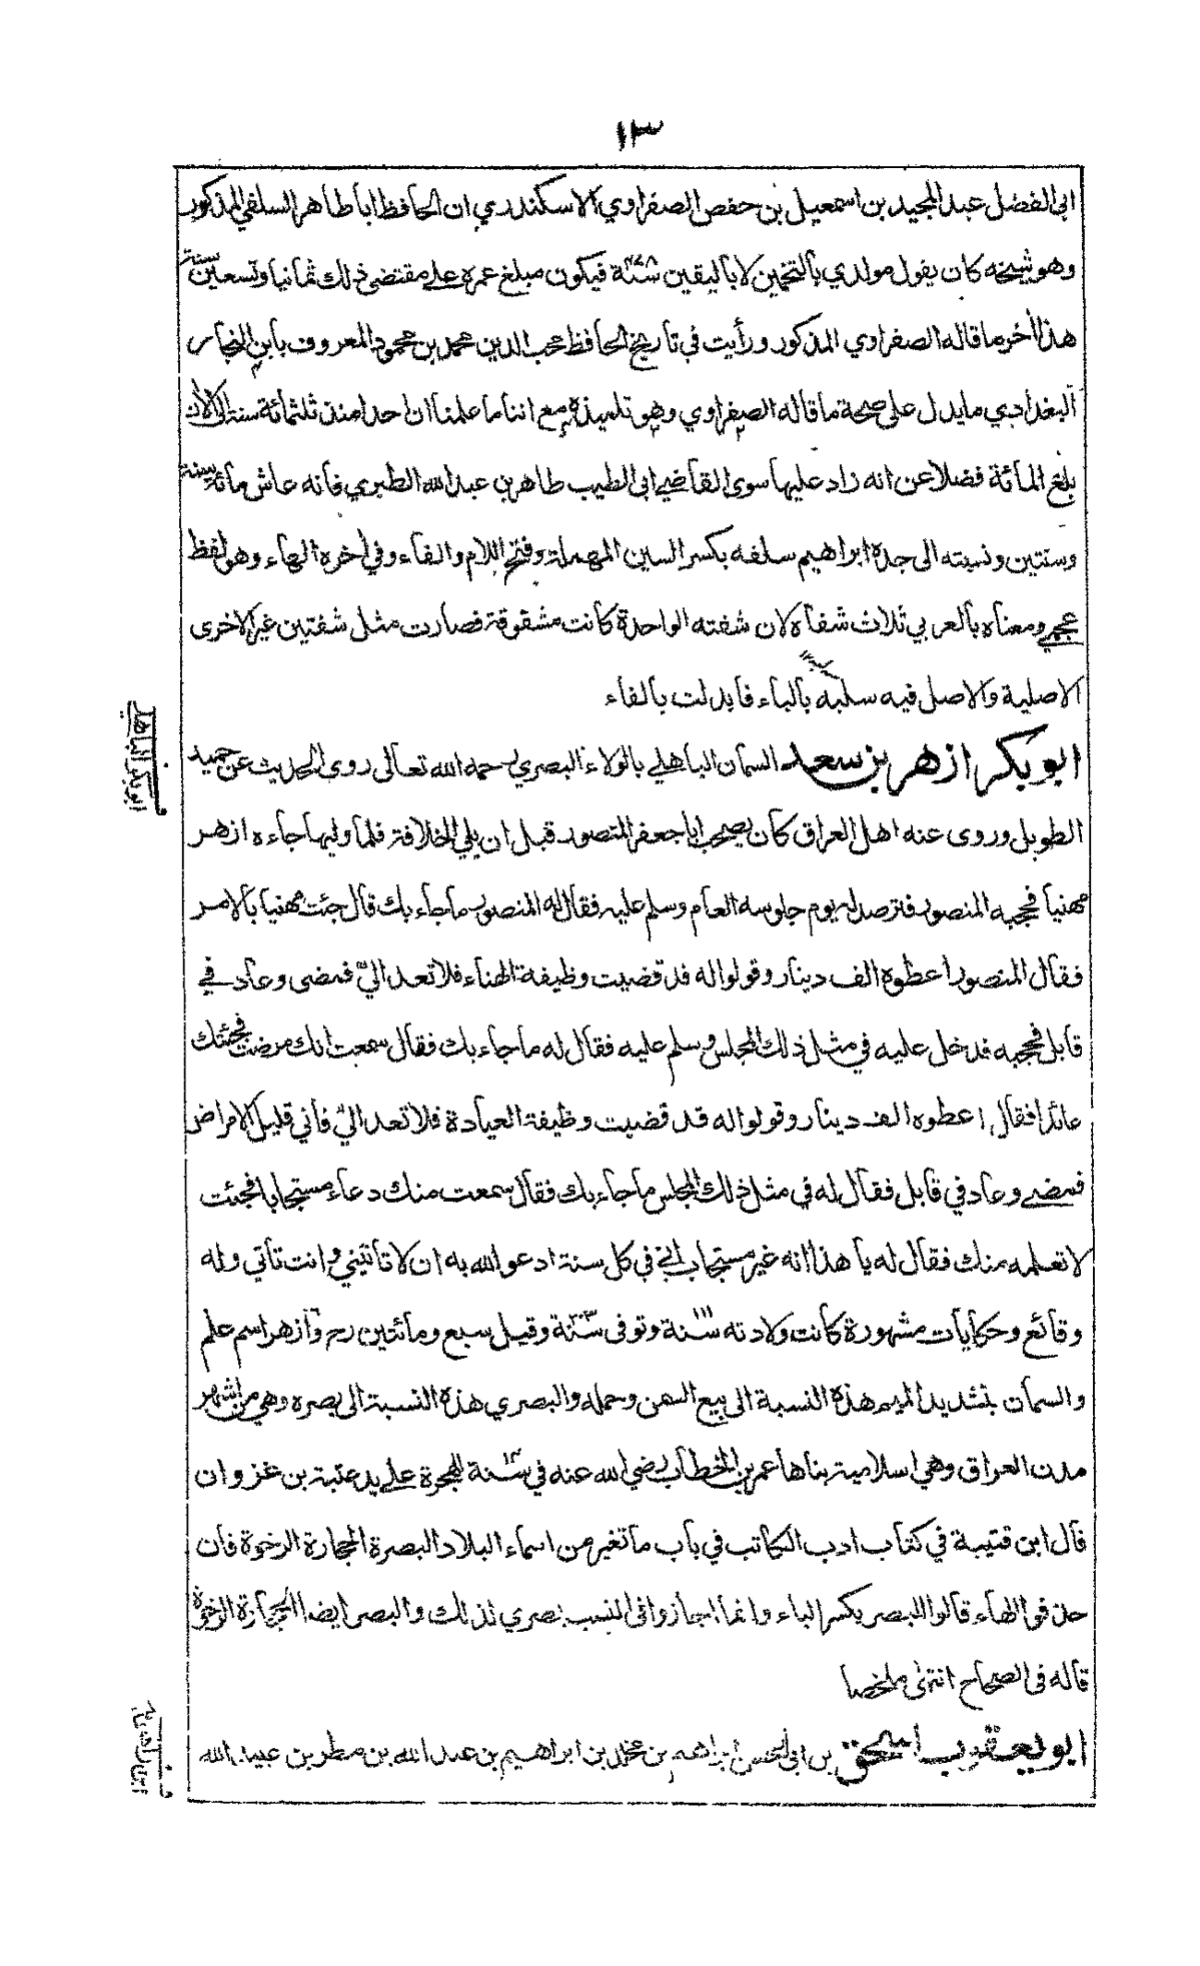 ١٣
ابى الفضل عبد المجيد بن اسمعيل بن حفص الصفراوي الاسكندري ان الحافظ ابا طاهر السلفي المذكور
وهو شيخه كان يقول مولدي بالتخمين لا باليقين سنة ٤٧٨ فيكون مبلغ عمره على مقتضى ذلك ثمانيا وتسعين سنة
هذا أخر ما قاله الصفراوي المذكور ورأيت في تاريخ الحافظ محب الدين محمد بن محمود المعروف بابن النجار
البغدادي ما يدل على صحة ما قاله الصفراوي وهو تلميذه مع اننا ما علمنا ان احدا منذ ثلثمائة سنة الى الآن
بلغ المائة فضلا عن انه زاد عليها سوى القاضي ابى الطيب طاهر بن عبد الله الطبري فانه عاش مائة سنة
وسنتين ونسبته الى جده ابراهيم سلفه بكسر السين المهملة وفتح اللام والفاء وفي اخره الهاء وهو لفظ
عجمي ومعناه بالعربي ثلاث شفاه لان شفته الواحدة كانت مشقوقة فصارت مثل شفتين غير الاخرى
الاصلية والاصل فيه سلبه بالباء فابدلت بالفاء
ابو بكر ازهر بن سعد السمان الباهلي بالولاء البصري رحمه الله تعالى روى الحديث عن حميد
الطويل وروى عنه اهل العراق كان يصحب ابا جعفر المنصور قبل ان يلي الخلافة فلما وليها جاءه ازهر
مهنيا فحجبه المنصور فترصد له يوم جلوسه العام وسلم عليه فقال له المنصور ما جاء بك قال جئت مهنيا بالامر
فقال المنصور اعطوه الف دينار وقولوا له قد قضيت وظيفة الهناء فلا تعد اليّ فمضى وعاد في
قابل فحجبه فدخل عليه في مثل ذلك المجلس وسلم عليه فقال له ما جاء بك فقال سمعت انك مرضت فجئتك
عائدا فقال اعطوه الف دينار وقولوا له قد قضيت وظيفة العيادة فلا تعد اليّ فاني قليل الامراض
فمضى وعاد في قابل فقال له في مثل ذلك المجلس ما جاء بك فقال سمعت منك دعاء مستجابا فجئت
لا تعلمه منك فقال له يا هذا انه غير مستجاب اني في كل سنة ادعو الله به ان لا تأتيني وانت تأتي وله
وقائع وحكايات مشهورة كانت ولادته سنة ١١١ وتوفى سنة ٢٠٣ وقيل سبع ومائتين رح وازهر اسم علم
والسمان بتشديد الميم هذه النسبة الى بيع السمن وحمله والبصري هذه النسبة الى بصره وهي من اشهر
مدن العراق وهي اسلامية بناها عمر بن الخطاب رضي الله عنه في سنة ١٤ للهجرة على يد عتبة بن غزوان
قال ابن قتيبة في كتاب ادب الكاتب في باب ما تغير من اسماء البلاد البصرة الحجارة الرخوة فان
حذفوا الهاء قالوا البصر بكسر الباء وانما اجازوا فى النسب بصري لذلك والبصر ايضا الحجارة الرخوة
قاله فى الصحاح انتهى ملخصا
ابو يعقوب اسحق بن ابى الحسن ابراهيم بن مخلد بن ابراهيم بن عبد الله بن مطر بن عبيد الله
ابو بكر الباهلي